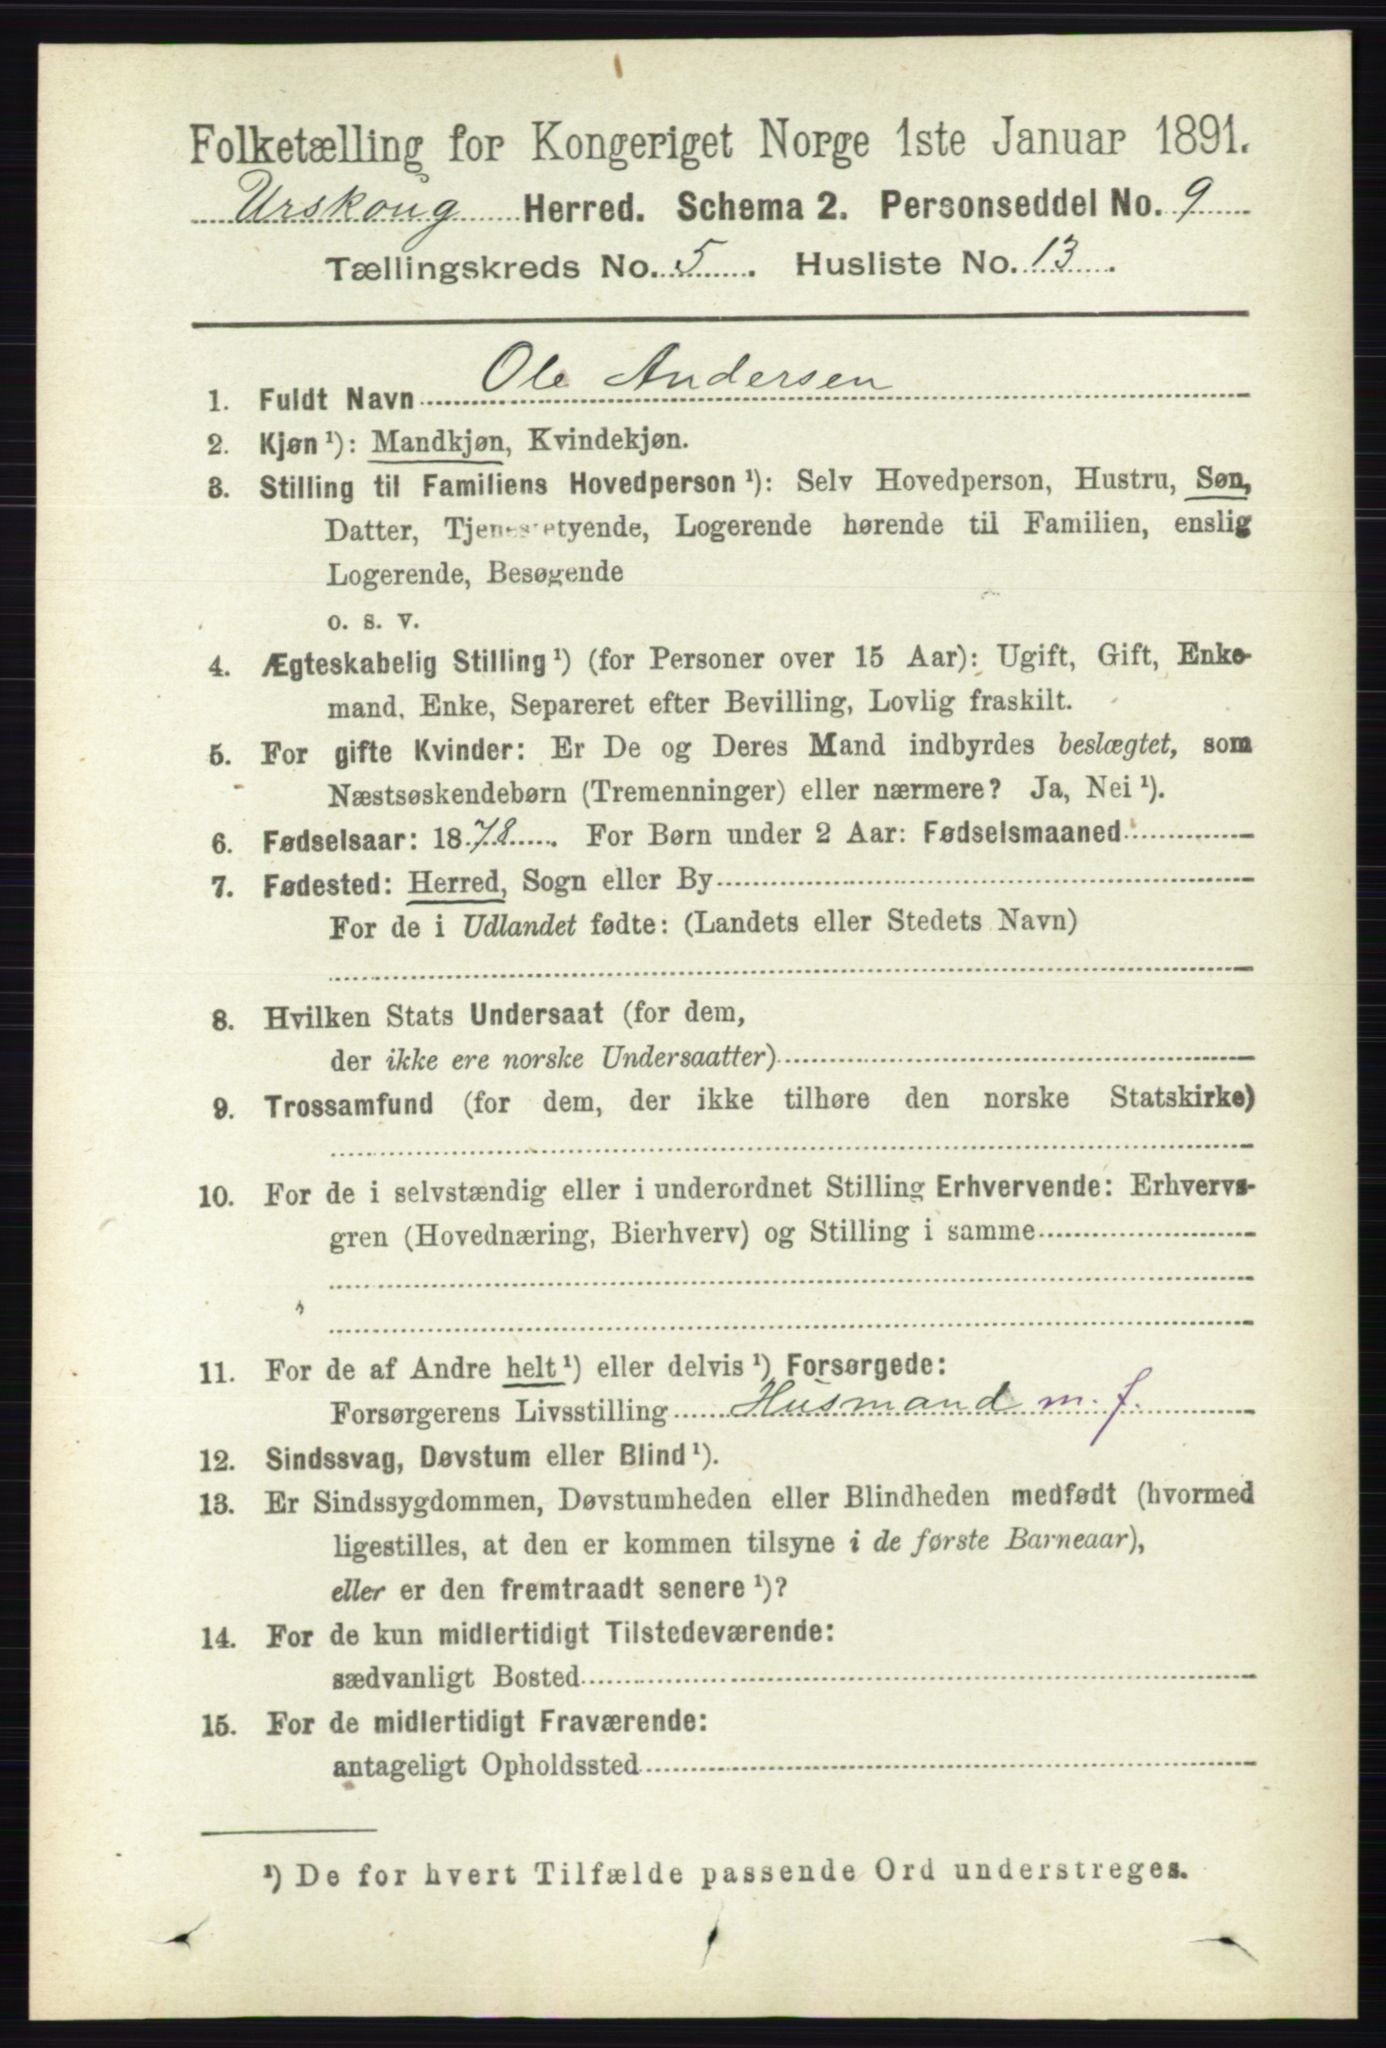 Folketælling for Kongeriget Norge 1ste Januar 1891.
Urskoug Herred. Schema 2. Personseddel No. 9
Tællingskreds No. 5. Husliste No. 13.
1. Fuldt Navn Ole Andersen
2. Kjøn ¹): Mandkjøn, Kvindekjøn.
3. Stilling til Familiens Hovedperson ¹): Selv Hovedperson, Hustru, Søn,
Datter, Tjenestetyende, Logerende hørende til Familien, enslig
Logerende, Besøgende
o. s. v.
4. Ægteskabelig Stilling ¹) (for Personer over 15 Aar): Ugift, Gift, Enke-
mand, Enke, Separeret efter Bevilling, Lovlig fraskilt.
5. For gifte Kvinder: Er De og Deres Mand indbyrdes beslægtet, som
Næstsøskendebørn (Tremenninger) eller nærmere? Ja, Nei ¹).
6. Fødselsaar: 1878. For Børn under 2 Aar: Fødselsmaaned
7. Fødested: Herred, Sogn eller By
For de i Udlandet fødte: (Landets eller Stedets Navn)
8. Hvilken Stats Undersaat (for dem,
der ikke ere norske Undersaatter)
9. Trossamfund (for dem, der ikke tilhøre den norske Statskirke)
10. For de i selvstændig eller i underordnet Stilling Erhvervende: Erhvervs-
gren (Hovednæring, Bierhverv) og Stilling i samme
11. For de af Andre helt ¹) eller delvis ¹) Forsørgede:
Forsørgerens Livsstilling Husmand m. f.
12. Sindssvag, Døvstum eller Blind ¹).
13. Er Sindssygdommen, Døvstumheden eller Blindheden medfødt (hvormed
ligestilles, at den er kommen tilsyne i de første Barneaar),
eller er den fremtraadt senere ¹)?
14. For de kun midlertidigt Tilstedeværende:
sædvanligt Bosted
15. For de midlertidigt Fraværende:
antageligt Opholdssted
¹) De for hvert Tilfælde passende Ord understreges.